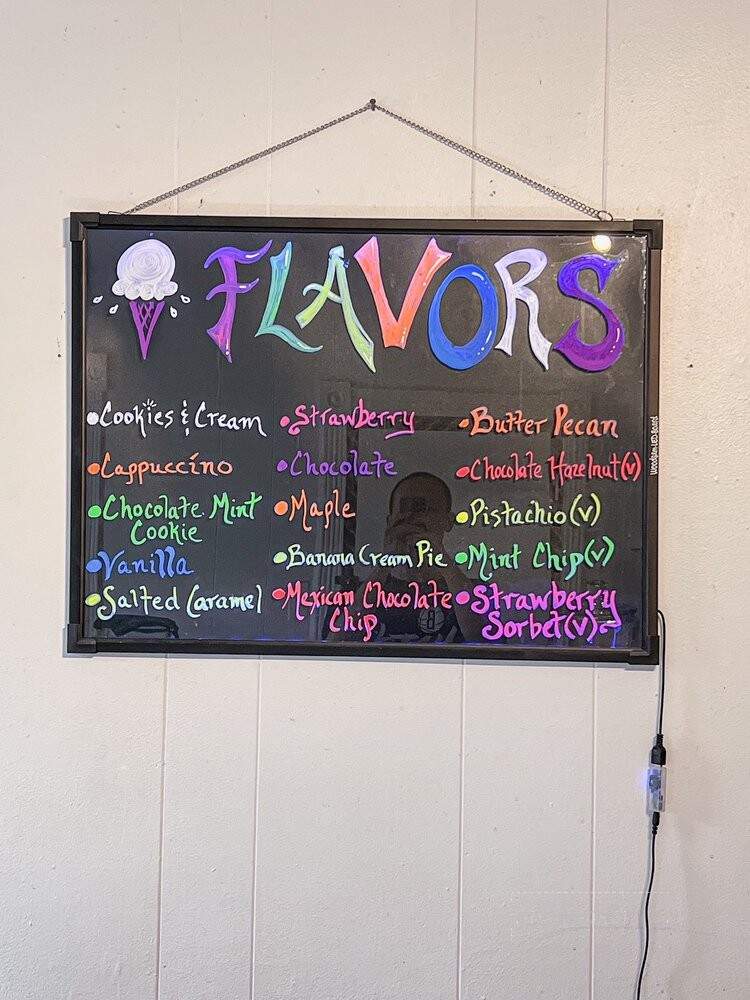 FLAVORS
•Cookies & Cream
•Cappuccino
•Chocolate Mint
Cookie
•Vanilla
•Salted Caramel
•Strawberry
•Chocolate
•Maple
•Banana Cream Pie
•Mexican Chocolate
Chip
•Butter Pecan
•Chocolate Hazelnut(v)
•Pistachio(v)
•Mint Chip(v)
•Strawberry
Sorbet(v)